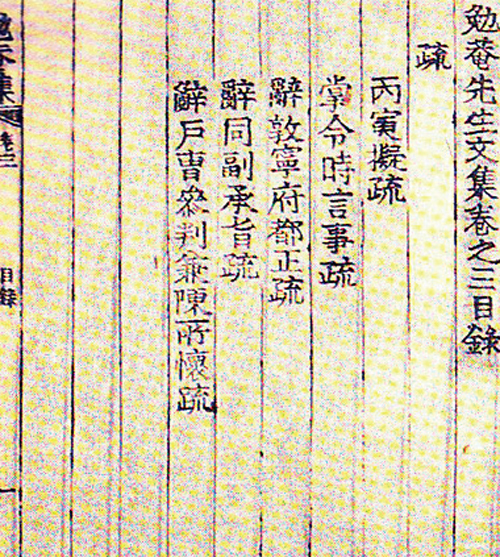 勉菴先生文集卷之三目錄
疏
丙寅擬疏
掌令時言事疏
辭敦寧府都正疏
辭同副承旨疏
辭戶曹參判兼陳所懷疏
目錄
一